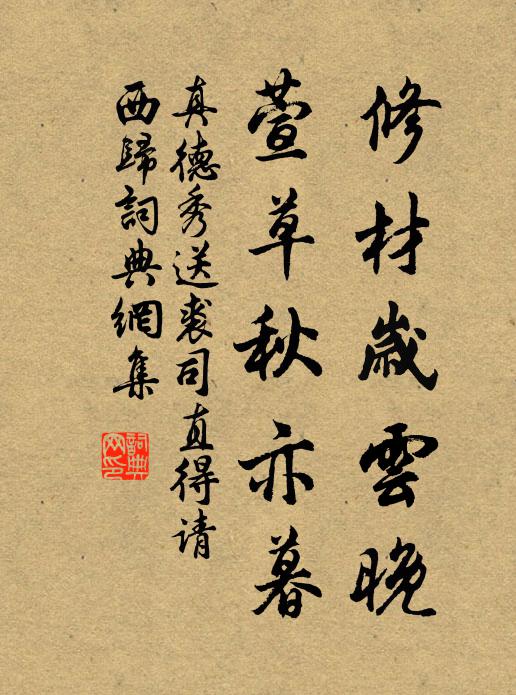 修材歲雲晚
萱草秋亦暮
真德秀送裘司直得请
西歸詞典網集
詞典网印